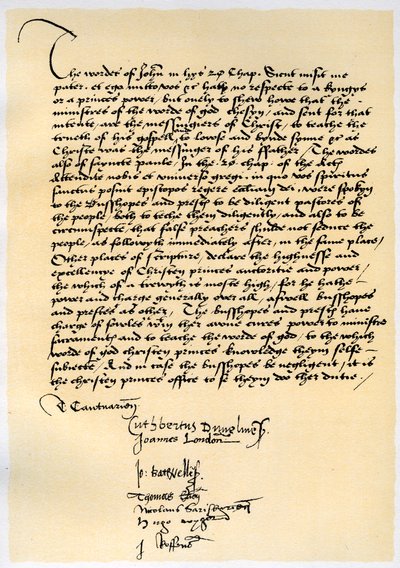 The wordes of John in hys 20 Chap. Sicut misit me
pater, et ego mitto vos &c hath no respecte to a kyngys
or a princes power, but onely to shew howe that the
ministres of the worde of god chosyn, and sent for that
intente, are the messengers of Christe, to teache the
trueth of his gospell, to loose and bynde synne &c as
Christe was the messinger of his ffather, The wordes
also of saynte paule, In the 20 chap. of the Acts
Attendite vobis et universo gregi, in quo vos spiritus
sanctus posuit episcopos regere ecclesiam dei, were spokyn
to the Busshopes and prests to be diligent pastores of
the people, both to teche them diligently, and also to be
circumspecte, that false preachers shulde not seduce the
people, as followyth immediately after, in the same place,
Other places of scripture, declare the highnesse and
excellencye of Christen princes auctoritie and power,
the which of a trewyth is moste high, for he hathe
power and charge generally over all, aswell busshopes
and prestes as other, The busshopes and prests have
charge of sowles within their awne cures, power to ministre
sacraments and to teache the worde of god, to the which
worde of god christen princes knowledge theym selfe
subiecte, And in case the busshopes be negligent, it is
the christen princes office to se theym doo ther dutie,
T Cantuarien
Cuthbertus Dunelmens
Joannes London
Jo: Bathwelles
Thomas Elien
Nicolaus Sarisburien
Hugo wygorn
J Roffens